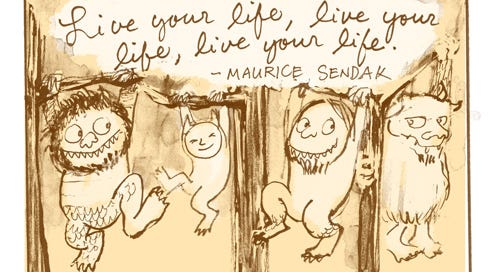 Live your life, live your
life, live your life.
- MAURICE SENDAK